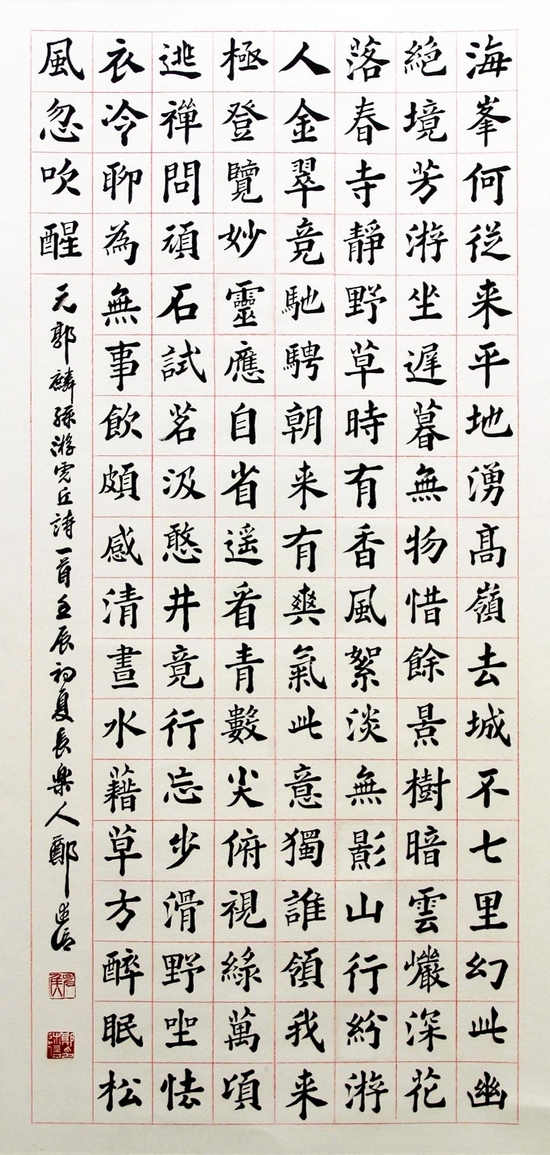 海峯何從来平地湧髙嶺去城不七里幻此幽
絕境芳游坐遲暮無物惜餘景樹暗雲巗深花
落春寺靜野草時有香風絮淡無影山行紛游
人金翠竟馳騁朝来有爽氣此意獨誰領我来
極登覽妙靈應自省遥看青數尖俯視綠萬頃
逃禪問頑石試茗汲憨井竟行忘步滑野坐怯
衣冷聊為無事飲頗感清晝水藉草方醉眠松
風忽吹醒
元郭麟孫游虎丘詩一首壬辰初夏長樂人鄭